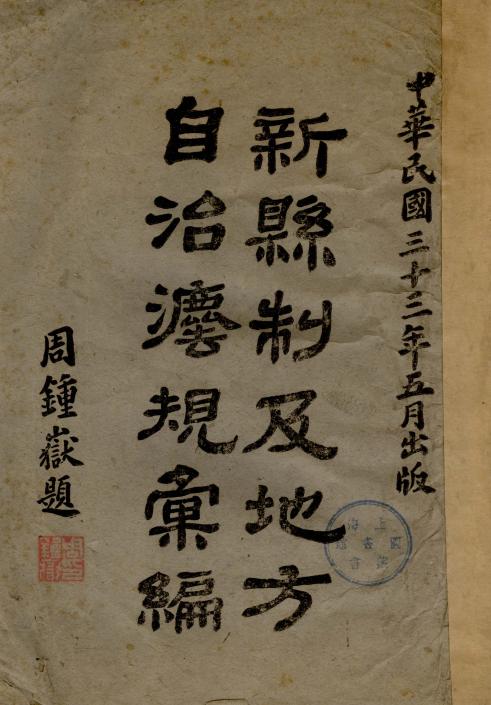 中華民國三十三年五月出版
新縣制及地方
自治灋規彙編
周鍾嶽題